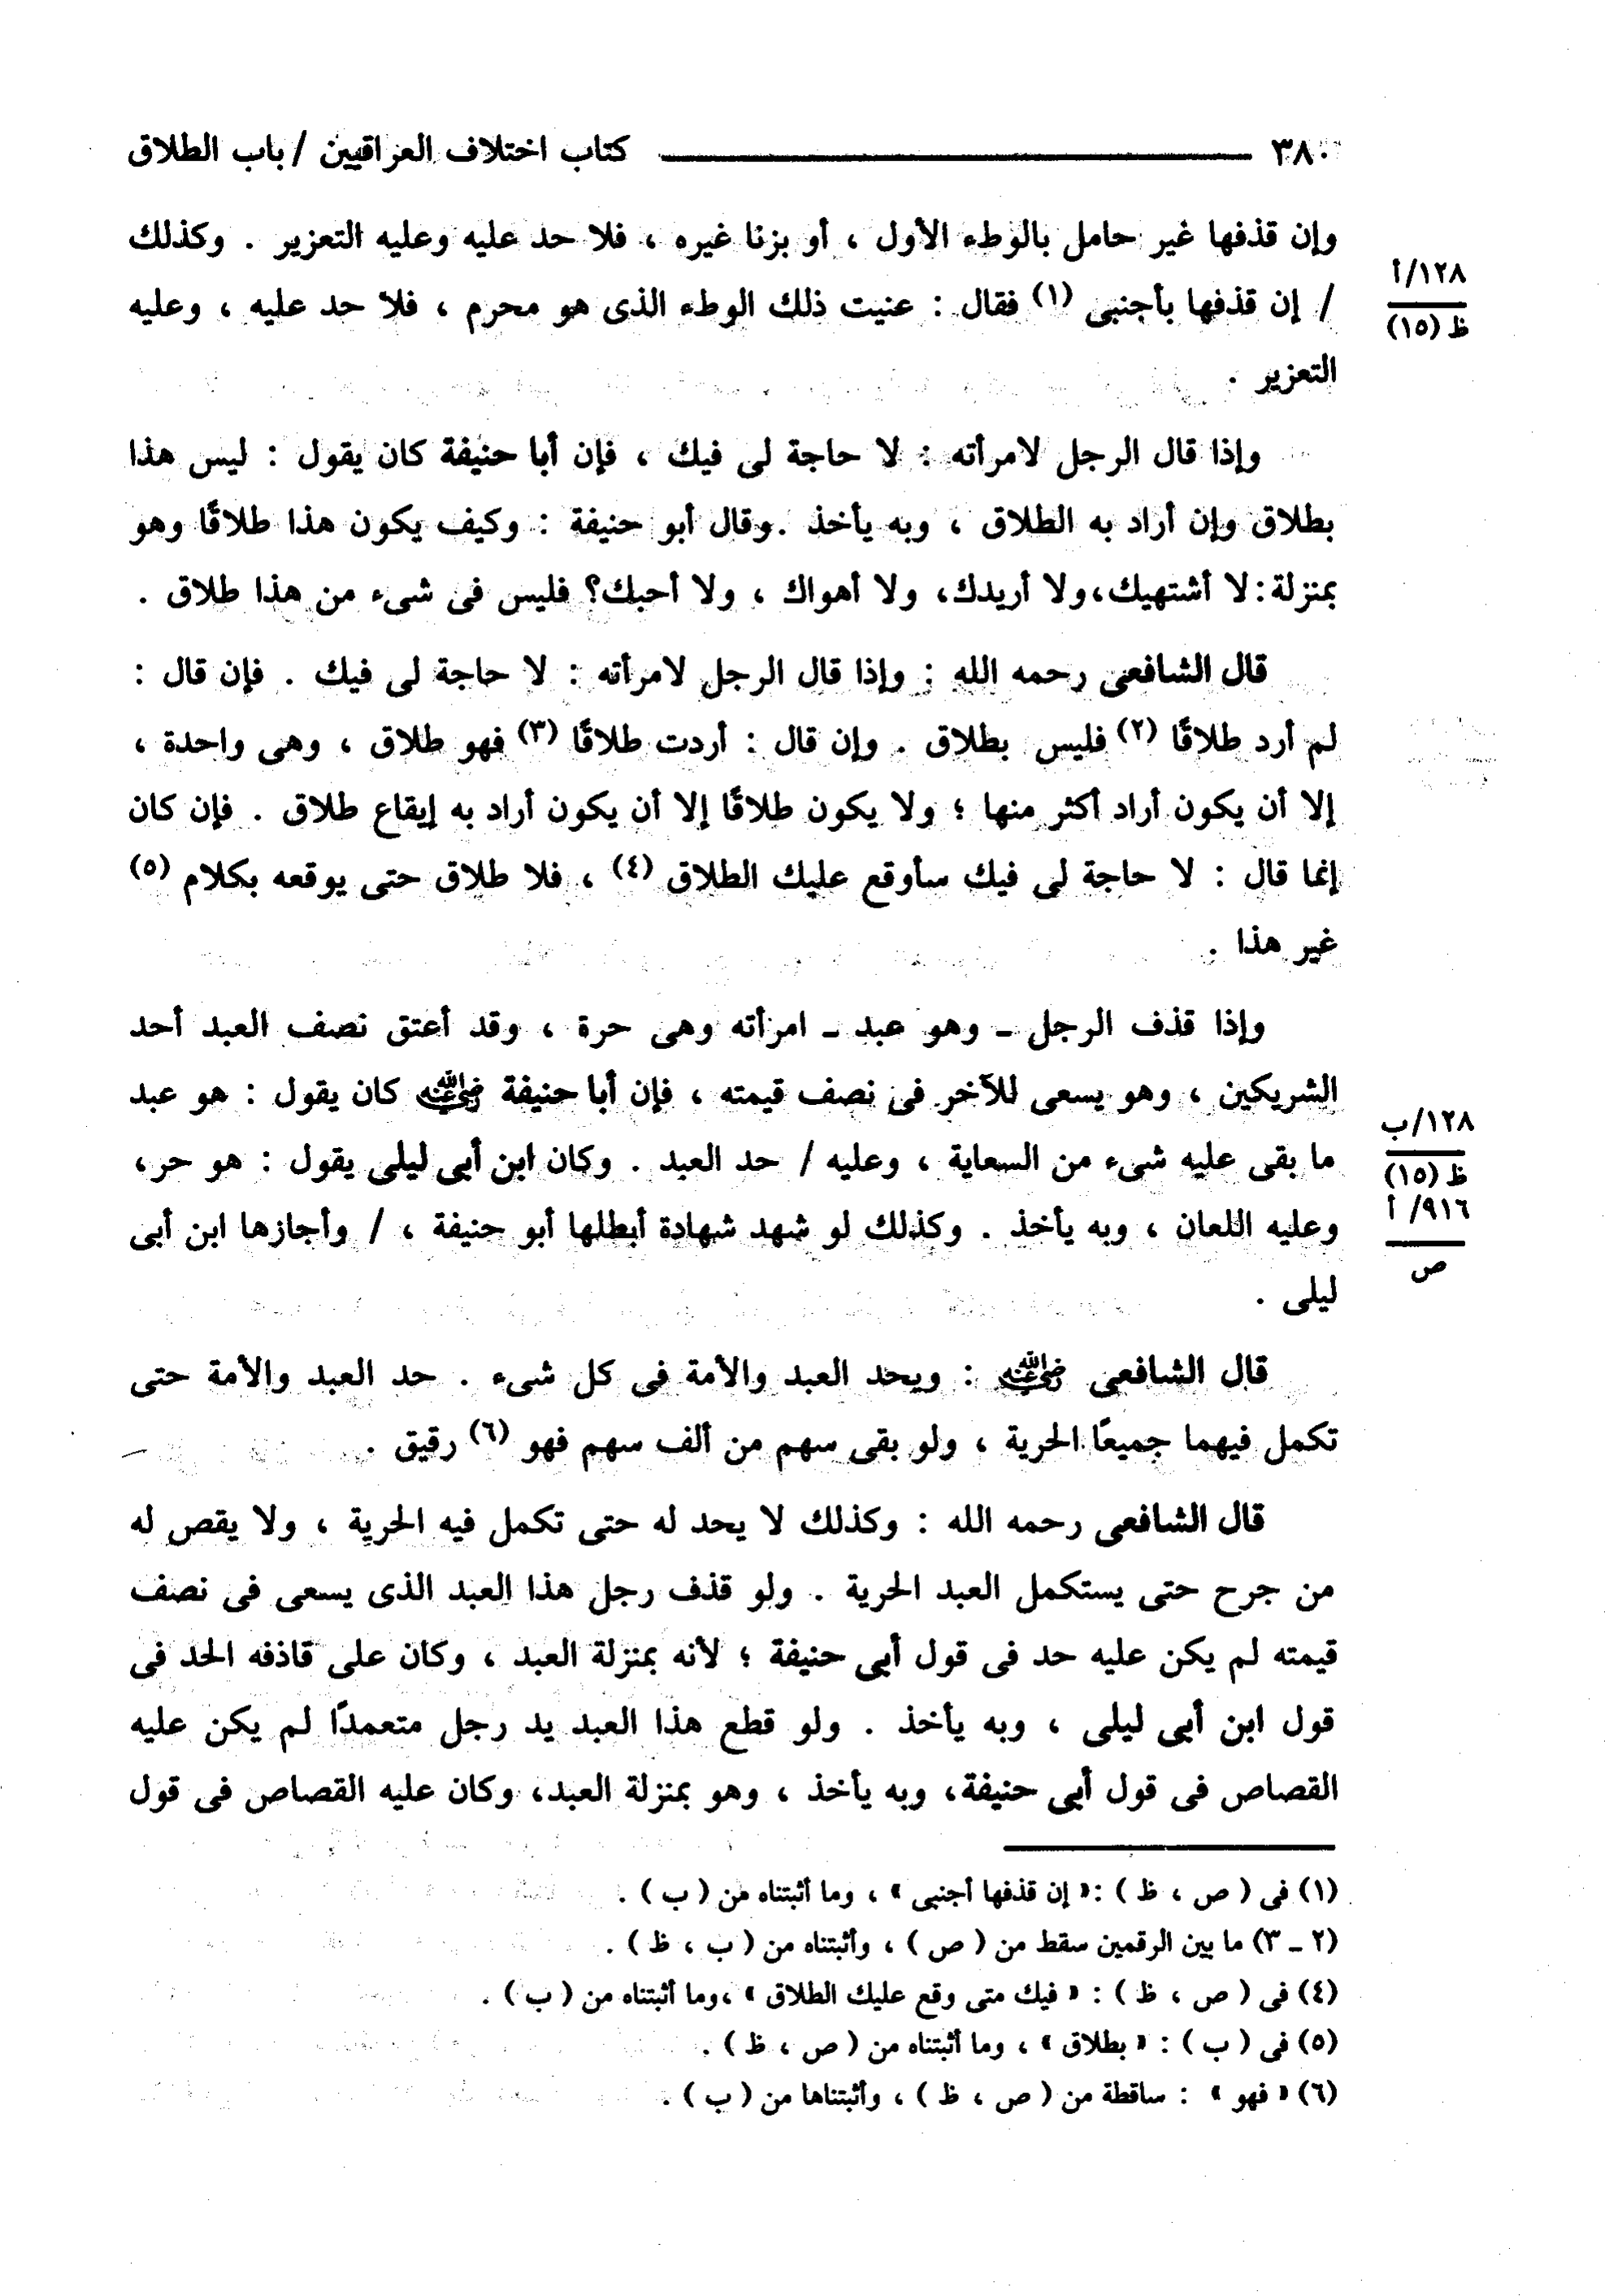 ٣٨٠ كتاب اختلاف العراقيين / باب الطلاق
وإن قذفها غير حامل بالوطء الأول ، أو بزنا غيره ، فلا حد عليه وعليه التعزير . وكذلك
١٢٨/أ
ظ (١٥)
/ إن قذفها بأجنبى (١) فقال : عنيت ذلك الوطء الذى هو محرم ، فلا حد عليه ، وعليه
التعزير .
وإذا قال الرجل لامرأته : لا حاجة لى فيك ، فإن أبا حنيفة كان يقول : ليس هذا
بطلاق وإن أراد به الطلاق ، وبه يأخذ . وقال أبو حنيفة : وكيف يكون هذا طلاقًا وهو
بمنزلة : لا أشتهيك، ولا أريدك، ولا أهواك ، ولا أحبك؟ فليس فى شىء من هذا طلاق .
قال الشافعى رحمه الله : وإذا قال الرجل لامرأته : لا حاجة لى فيك . فإن قال :
لم أرد طلاقًا (٢) فليس بطلاق . وإن قال : أردت طلاقًا (٣) فهو طلاق ، وهى واحدة ،
إلا أن يكون أراد أكثر منها ؛ ولا يكون طلاقًا إلا أن يكون أراد به إيقاع طلاق . فإن كان
إنما قال : لا حاجة لى فيك سأوقع عليك الطلاق (٤) ، فلا طلاق حتى يوقعه بكلام (٥)
غير هذا .
وإذا قذف الرجل ـ وهو عبد ـ امرأته وهى حرة ، وقد أعتق نصف العبد أحد
الشريكين ، وهو يسعى للآخر فى نصف قيمته ، فإن أبا حنيفة رضي الله عنه كان يقول : هو عبد
١٢٨/ب
ظ (١٥)
٩١٦/ أ
ص
ما بقى عليه شىء من السعاية ، وعليه / حد العبد . وكان ابن أبى ليلى يقول : هو حر،
وعليه اللعان ، وبه يأخذ . وكذلك لو شهد شهادة أبطلها أبو حنيفة ، / وأجازها ابن أبى
ليلى .
قال الشافعى رضي الله عنه : ويحد العبد والأمة فى كل شىء . حد العبد والأمة حتى
تكمل فيهما جميعًا الحرية ، ولو بقى سهم من ألف سهم فهو (٦) رقيق .
قال الشافعى رحمه الله : وكذلك لا يحد له حتى تكمل فيه الحرية ، ولا يقص له
من جرح حتى يستكمل العبد الحرية . ولو قذف رجل هذا العبد الذى يسعى فى نصف
قيمته لم يكن عليه حد فى قول أبى حنيفة ؛ لأنه بمنزلة العبد ، وكان على قاذفه الحد فى
قول ابن أبى ليلى ، وبه يأخذ . ولو قطع هذا العبد يد رجل متعمدًا لم يكن عليه
القصاص فى قول أبى حنيفة، وبه يأخذ ، وهو بمنزلة العبد، وكان عليه القصاص فى قول
(١) فى ( ص ، ظ ) :« إن قذفها أجنبى » ، وما أثبتناه من ( ب ) .
(٢ ـ ٣) ما بين الرقمين سقط من ( ص ) ، وأثبتناه من ( ب ، ظ ) .
(٤) فى ( ص ، ظ ) : « فيك متى وقع عليك الطلاق » ،وما أثبتناه من ( ب ) .
(٥) فى ( ب ) : « بطلاق » ، وما أثبتناه من ( ص ، ظ ) .
(٦) « فهو » : ساقطة من ( ص ، ظ ) ، وأثبتناها من ( ب ) .